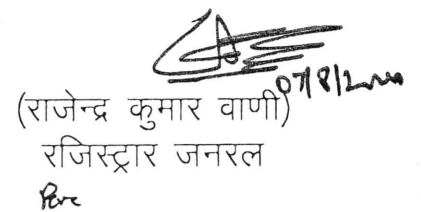 07/8/2020
(राजेन्द्र कुमार वाणी)
रजिस्ट्रार जनरल